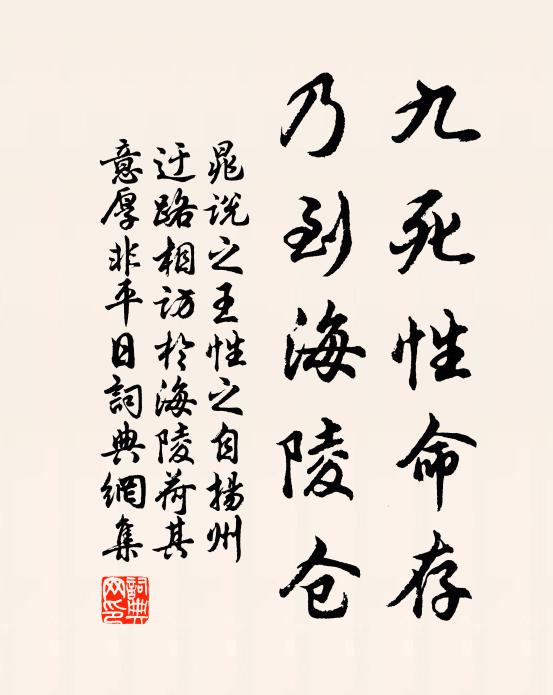 九死性命存
乃到海陵仓
晁说之王性之自揚州
迂路相访於海陵荷其
意厚非平日詞典網集
詞典网印